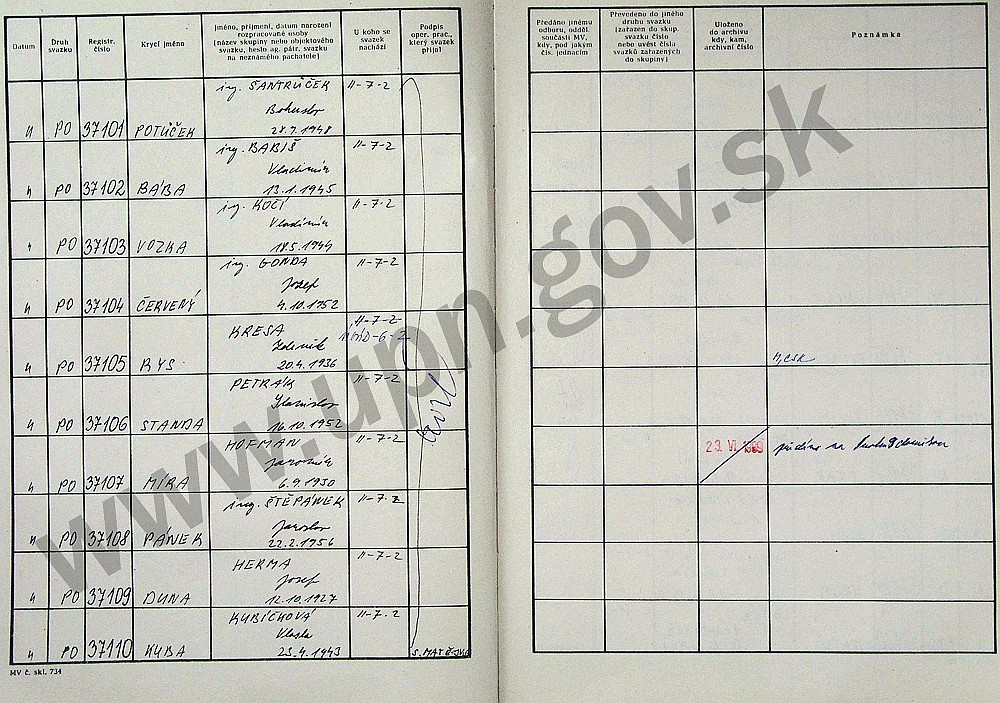 Datum
Druh svazku
Registr. číslo
Krycí jméno
Jméno, příjmení, datum narození rozpracované osoby (název skupiny nebo objektového svazku, heslo ag. pátr. svazku na neznámého pachatele)
U koho se svazek nachází
Podpis oper. prac., který svazek přijal
Předáno jinému odboru, odděl. součásti MV, kdy, pod jakým čís. jednacím
Převedeno do jiného druhu svazku (zařazen do skup. svazku číslo nebo uvést čísla svazků zařazených do skupiny)
Uloženo do archivu kdy, kam, archivní číslo
Poznámka
ing. ŠANTRŮČEK II-7-2
Bohuslav
" PO 37101 POTŮČEK 28.7.1948
ing. BABIŠ II-7-2
Vladimír
" PO 37102 BÁBA 13.1.1945
ing. KOČÍ II-7-2
Vladimír
" PO 37103 VOZKA 18.5.1944
ing. GONDA II-7-2
Josef
" PO 37104 ČERVENÝ 4.10.1952
KRESA II-7-2
Zdeněk
" PO 37105 RYS 20.4.1936
PETRÁK II-7-2
Stanislav
" PO 37106 STANDA 16.10.1952
HOFMAN II-7-2
Jaromír
23. VI. 1989
" PO 37107 MÍRA 6.9.1930
ing. ŠTĚPÁNEK II-7-2
Jaroslav
" PO 37108 PÁNEK 22.2.1956
HERMA II-7-2
Josef
" PO 37109 DUNA 12.10.1927
KUBÍČKOVÁ II-7-2
Vlasta
" PO 37110 KUBA 23.4.1943
MV č. skl. 734
www.upn.gov.sk